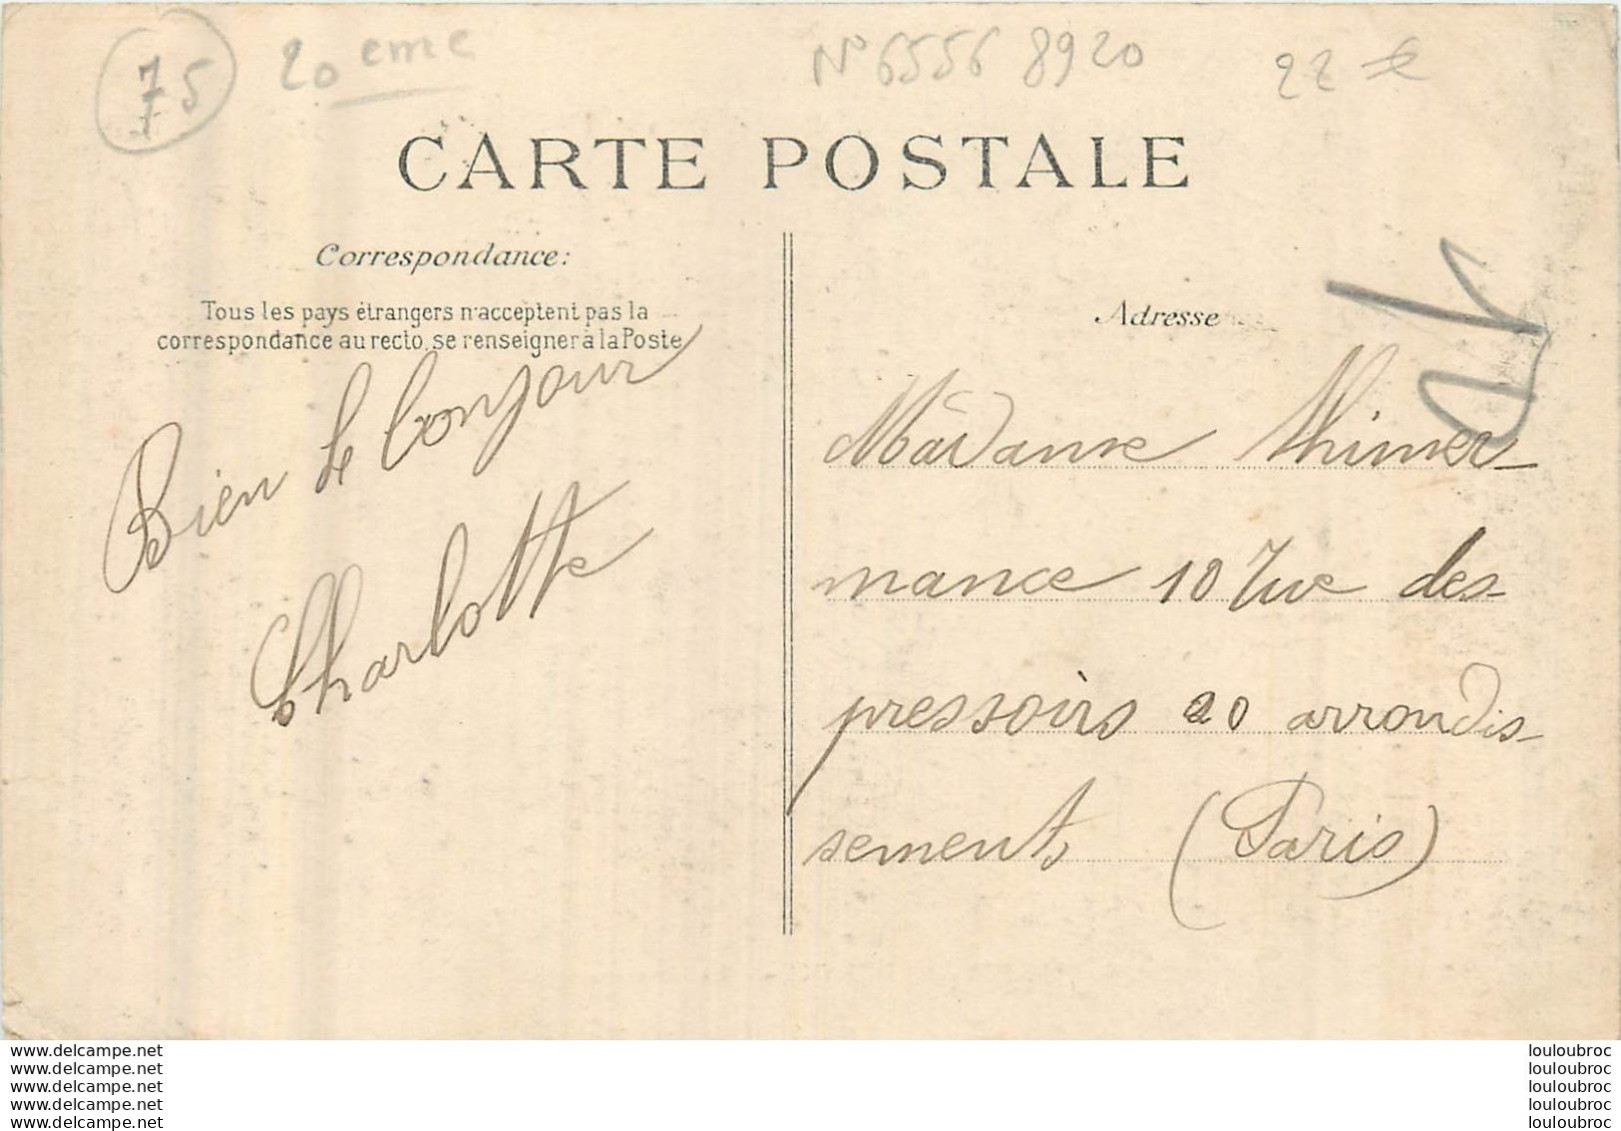 75
20 eme
N° 6556 8920
22 €
CARTE POSTALE
Correspondance:
Tous les pays étrangers n'acceptent pas la
correspondance au recto, se renseigner à la Poste
Bien le bonjour
Charlotte
Adresse
Madame Thimer-
mance 10 rue des
pressoirs 20 arrondis-
sement, (Paris)
www.delcampe.net
www.delcampe.net
www.delcampe.net
www.delcampe.net
www.delcampe.net
louloubroc
louloubroc
louloubroc
louloubroc
louloubroc